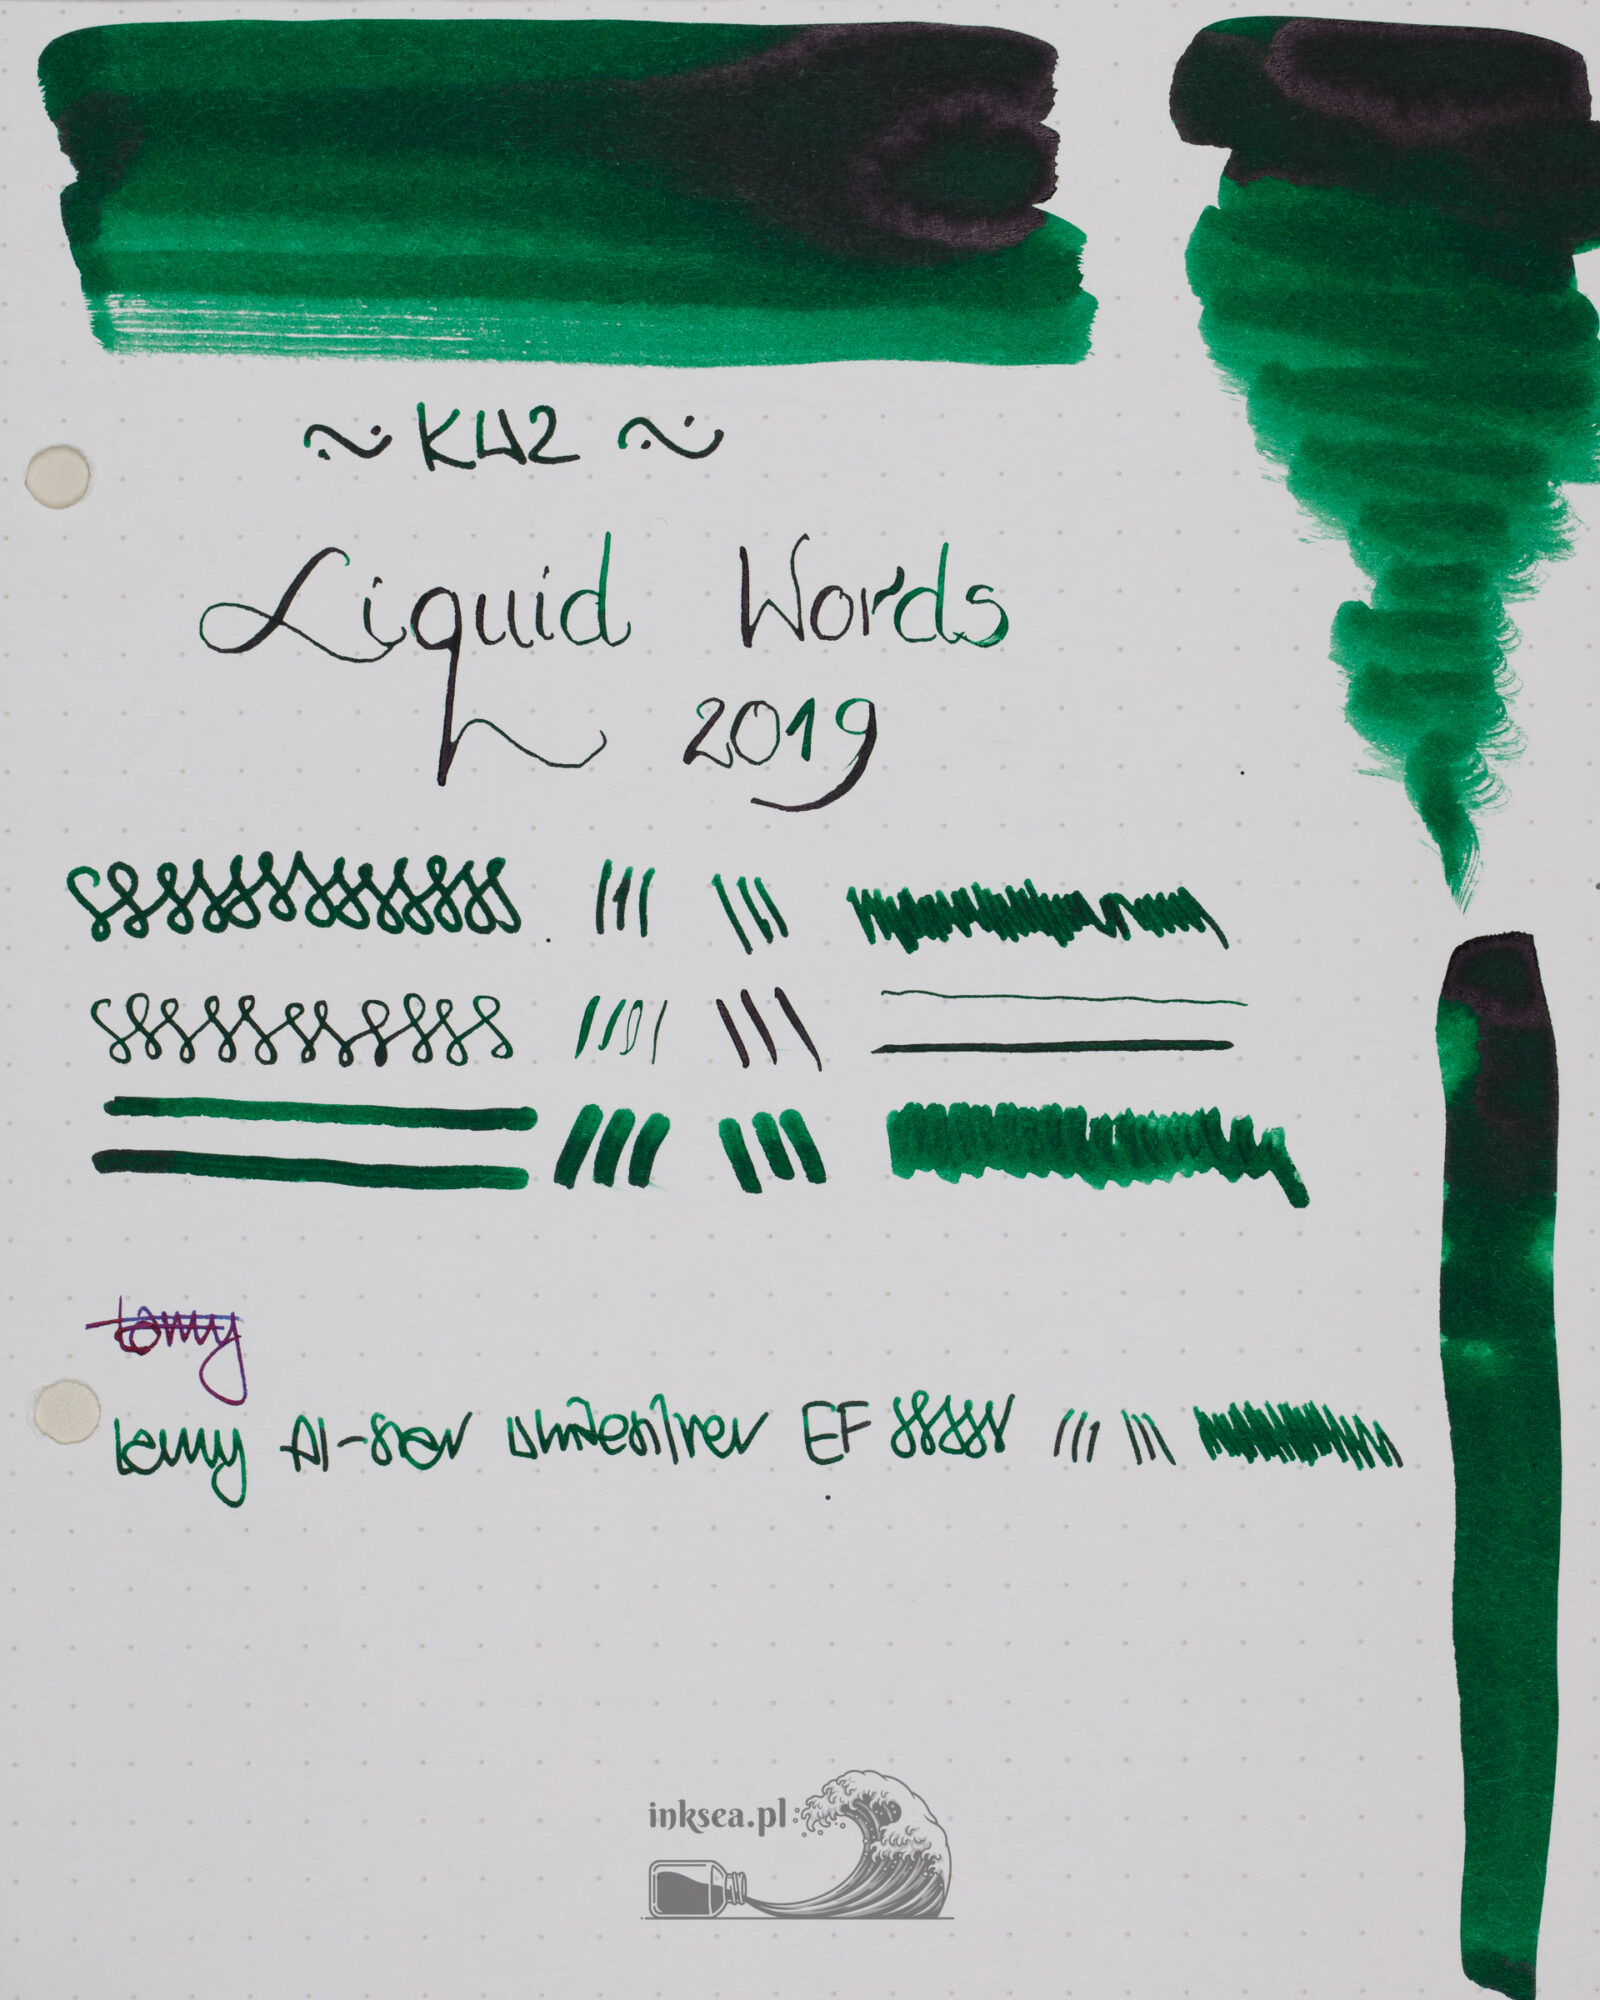 ~ KW2 ~
Liquid Words
2019
Lamy
Lamy Al-Star EF
inksea.pl